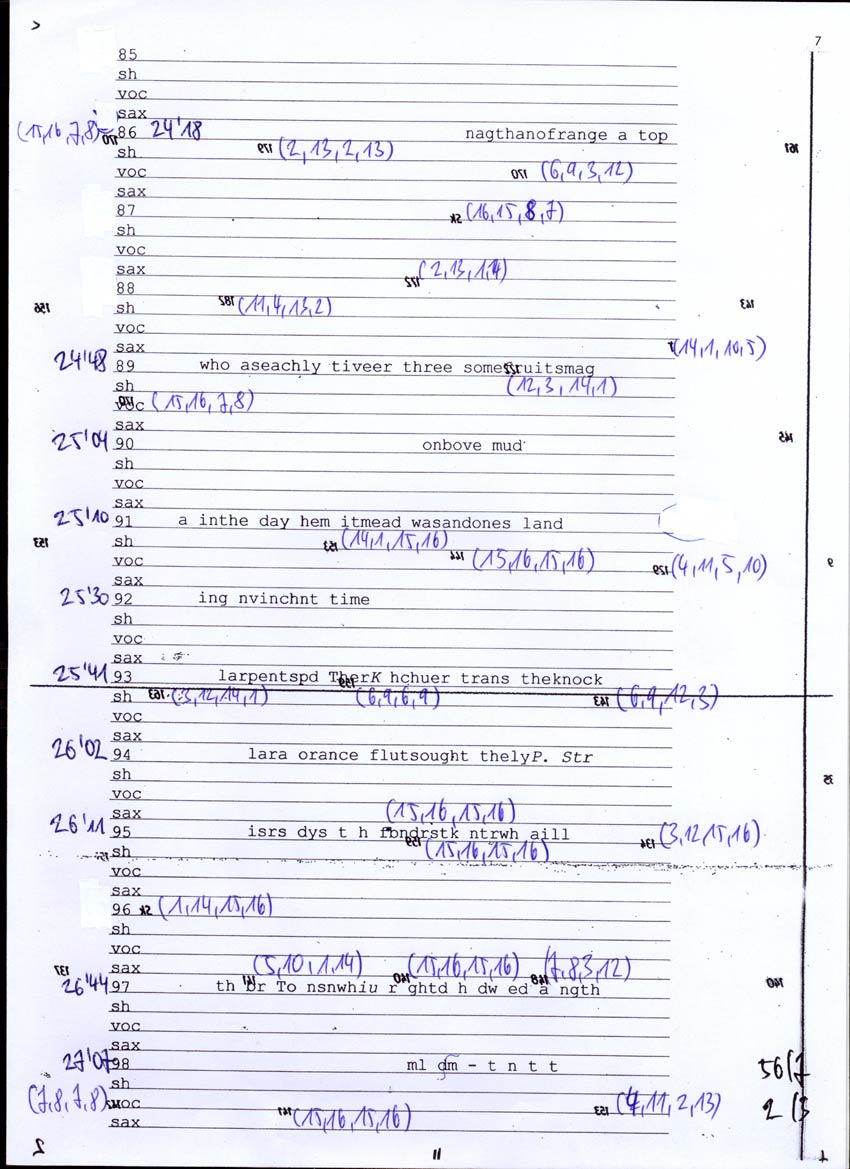 7
85
sh
voc
sax
(15,16,7,8) 170 86 24'18 nagthanofrange a top
sh 179 (2,13,2,13) 161
voc 170 (6,9,3,12)
sax
87 (16,15,8,7)
sh
voc
sax 172 (2,13,1,14)
88
156 sh 182 (11,4,13,2) 143
voc
sax (14,1,10,5)
24'48 89 who aseachly tiveer three somefruitsmag
sh (12,3,14,1)
voc (15,16,7,8)
sax
25'04 90 onbove mud 145
sh
voc
sax
25'10 91 a inthe day hem itmead wasandones land
153 sh 153 (14,1,15,16)
voc 144 (15,16,15,16) 129 (4,11,5,10) 9
sax
25'30 92 ing nvinchnt time
sh
voc
sax
25'41 93 larpentspd TherK hchuer trans theknock
sh 163 (3,12,14,1) 159 (6,9,6,9) 143 (6,9,12,3)
voc
sax
26'02 94 lara orance flutsought thelyP. Str
sh
voc
sax (15,16,15,16)
26'11 95 isrs dys t h fbndrstk ntrwh aill 134 (3,12,15,16)
sh 159 (15,16,15,16)
voc
sax
96 (1,14,15,16)
sh
voc
137 sax 141 (5,10,1,14) 140 (15,16,15,16) 148 (7,8,3,12)
26'44 97 th br To nsnwhiu r ghtd h dw ed a ngth 140
sh
voc
sax
27'07 98 ml dm - t n t t 56(7
sh
(7,8,7,8) voc 141 (15,16,15,16) 153 (4,11,2,13) 2 (3
sax
2 11 1